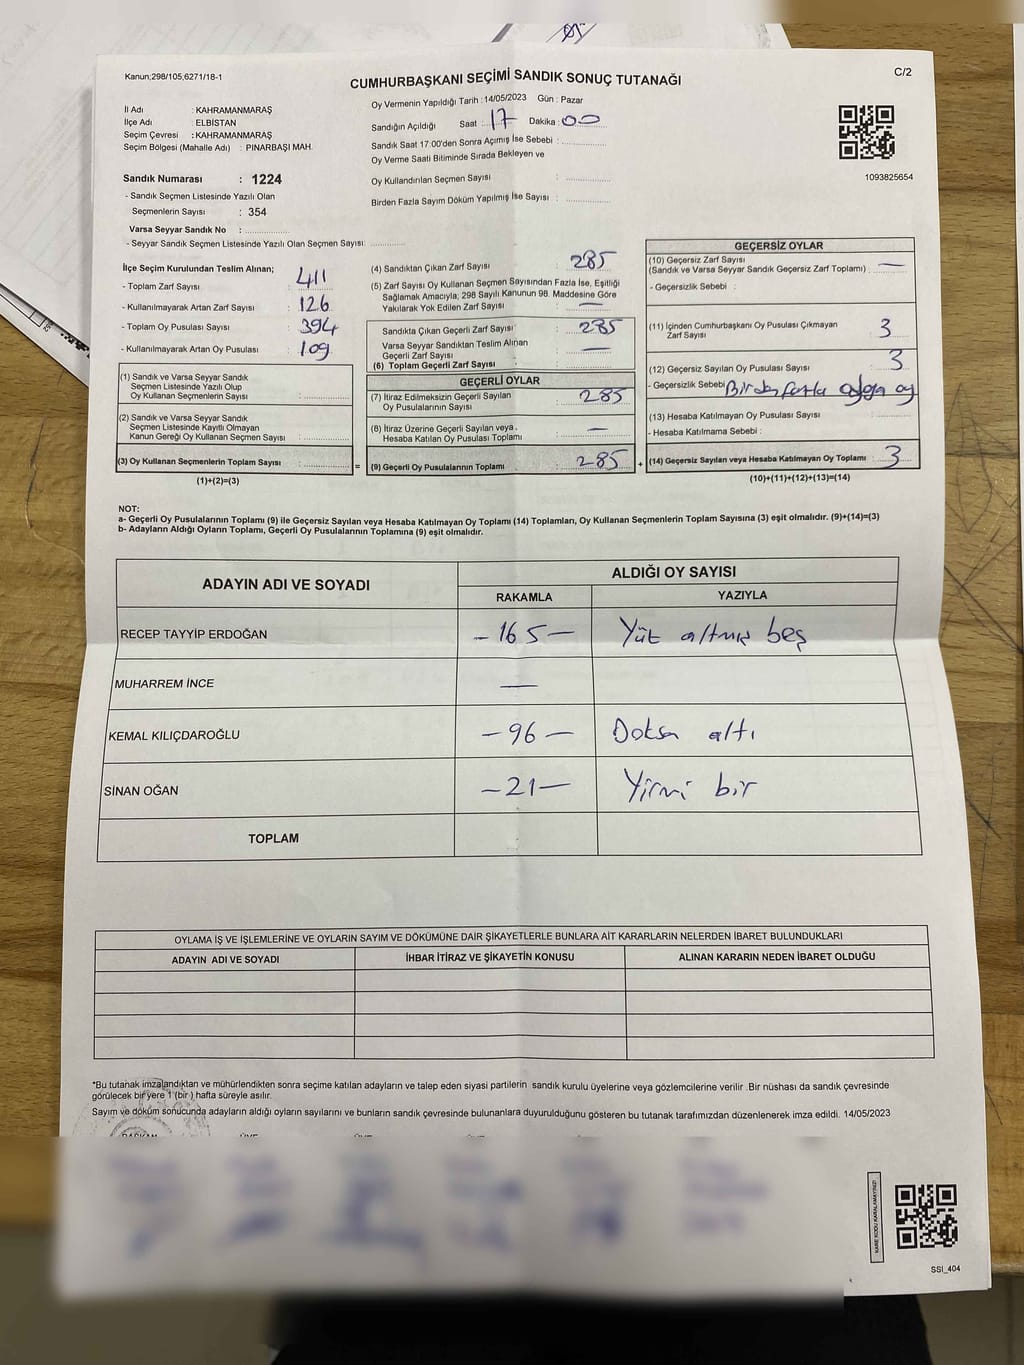 Kanun;298/105;6271/18-1
CUMHURBAŞKANI SEÇİMİ SANDIK SONUÇ TUTANAĞI
C/2
İl Adı : KAHRAMANMARAŞ
İlçe Adı : ELBİSTAN
Seçim Çevresi : KAHRAMANMARAŞ
Seçim Bölgesi (Mahalle Adı) : PINARBAŞI MAH.
Sandık Numarası : 1224
- Sandık Seçmen Listesinde Yazılı Olan
Seçmenlerin Sayısı : 354
Varsa Seyyar Sandık No :
- Seyyar Sandık Seçmen Listesinde Yazılı Olan Seçmen Sayısı:
Oy Vermenin Yapıldığı Tarih : 14/05/2023 Gün : Pazar
Sandığın Açıldığı Saat : 17 Dakika : 00
Sandık Saat 17:00'den Sonra Açımış İse Sebebi :
Oy Verme Saati Bitiminde Sırada Bekleyen ve
Oy Kullandırılan Seçmen Sayısı :
Birden Fazla Sayım Döküm Yapılmış İse Sayısı :
1093825654
İlçe Seçim Kurulundan Teslim Alınan;
- Toplam Zarf Sayısı : 411
- Kullanılmayarak Artan Zarf Sayısı : 126
- Toplam Oy Pusulası Sayısı : 394
- Kullanılmayarak Artan Oy Pusulası : 109
(1) Sandık ve Varsa Seyyar Sandık
Seçmen Listesinde Yazılı Olup
Oy Kullanan Seçmen Sayısı :
(2) Sandık ve Varsa Seyyar Sandık
Seçmen Listesinde Kayıtlı Olmayan
Kanun Gereği Oy Kullanan Seçmen Sayısı :
(3) Oy Kullanan Seçmenlerin Toplam Sayısı :
(1)+(2)=(3)
(4) Sandıktan Çıkan Zarf Sayısı : 285
(5) Zarf Sayısı Oy Kullanan Seçmen Sayısından Fazla İse, Eşitliği
Sağlamak Amacıyla; 298 Sayılı Kanunun 98. Maddesine Göre
Yakılarak Yok Edilen Zarf Sayısı : —
Sandıkta Çıkan Geçerli Zarf Sayısı : 285
Varsa Seyyar Sandıktan Teslim Alınan
Geçerli Zarf Sayısı : —
(6) Toplam Geçerli Zarf Sayısı :
GEÇERLİ OYLAR
(7) İtiraz Edilmeksizin Geçerli Sayılan
Oy Pusulalarının Sayısı : 285
(8) İtiraz Üzerine Geçerli Sayılan veya
Hesaba Katılan Oy Pusulası Toplamı : —
= (9) Geçerli Oy Pusulalarının Toplamı : 285 +
GEÇERSİZ OYLAR
(10) Geçersiz Zarf Sayısı
(Sandık ve Varsa Seyyar Sandık Geçersiz Zarf Toplamı) : —
- Geçersizlik Sebebi :
(11) İçinden Cumhurbaşkanı Oy Pusulası Çıkmayan
Zarf Sayısı : 3
(12) Geçersiz Sayılan Oy Pusulası Sayısı : 3
- Geçersizlik Sebebi : Birden fazla adaya oy
(13) Hesaba Katılmayan Oy Pusulası Sayısı :
- Hesaba Katılmama Sebebi :
(14) Geçersiz Sayılan veya Hesaba Katılmayan Oy Toplamı : 3
(10)+(11)+(12)+(13)=(14)
NOT:
a- Geçerli Oy Pusulalarının Toplamı (9) ile Geçersiz Sayılan veya Hesaba Katılmayan Oy Toplamı (14) Toplamları, Oy Kullanan Seçmenlerin Toplam Sayısına (3) eşit olmalıdır. (9)+(14)=(3)
b- Adayların Aldığı Oyların Toplamı, Geçerli Oy Pusulalarının Toplamına (9) eşit olmalıdır.
ADAYIN ADI VE SOYADI ALDIĞI OY SAYISI
RAKAMLA YAZIYLA
RECEP TAYYİP ERDOĞAN - 165 — Yüz altmış beş
MUHARREM İNCE —
KEMAL KILIÇDAROĞLU - 96 — Doksan altı
SİNAN OĞAN - 21 — Yirmi bir
TOPLAM
OYLAMA İŞ VE İŞLEMLERİNE VE OYLARIN SAYIM VE DÖKÜMÜNE DAİR ŞİKAYETLERLE BUNLARA AİT KARARLARIN NELERDEN İBARET BULUNDUKLARI
ADAYIN ADI VE SOYADI İHBAR İTİRAZ VE ŞİKAYETİN KONUSU ALINAN KARARIN NEDEN İBARET OLDUĞU
*Bu tutanak imzalandıktan ve mühürlendikten sonra seçime katılan adayların ve talep eden siyasi partilerin sandık kurulu üyelerine veya gözlemcilerine verilir .Bir nüshası da sandık çevresinde
görülecek bir yere 1 (bir ) hafta süreyle asılır.
Sayım ve döküm sonucunda adayların aldığı oyların sayılarını ve bunların sandık çevresinde bulunanlara duyurulduğunu gösteren bu tutanak tarafımızdan düzenlenerek imza edildi. 14/05/2023
BAŞKAN ÜYE ÜYE
KARE KODU KARALAMAYINIZ!
SSI_404